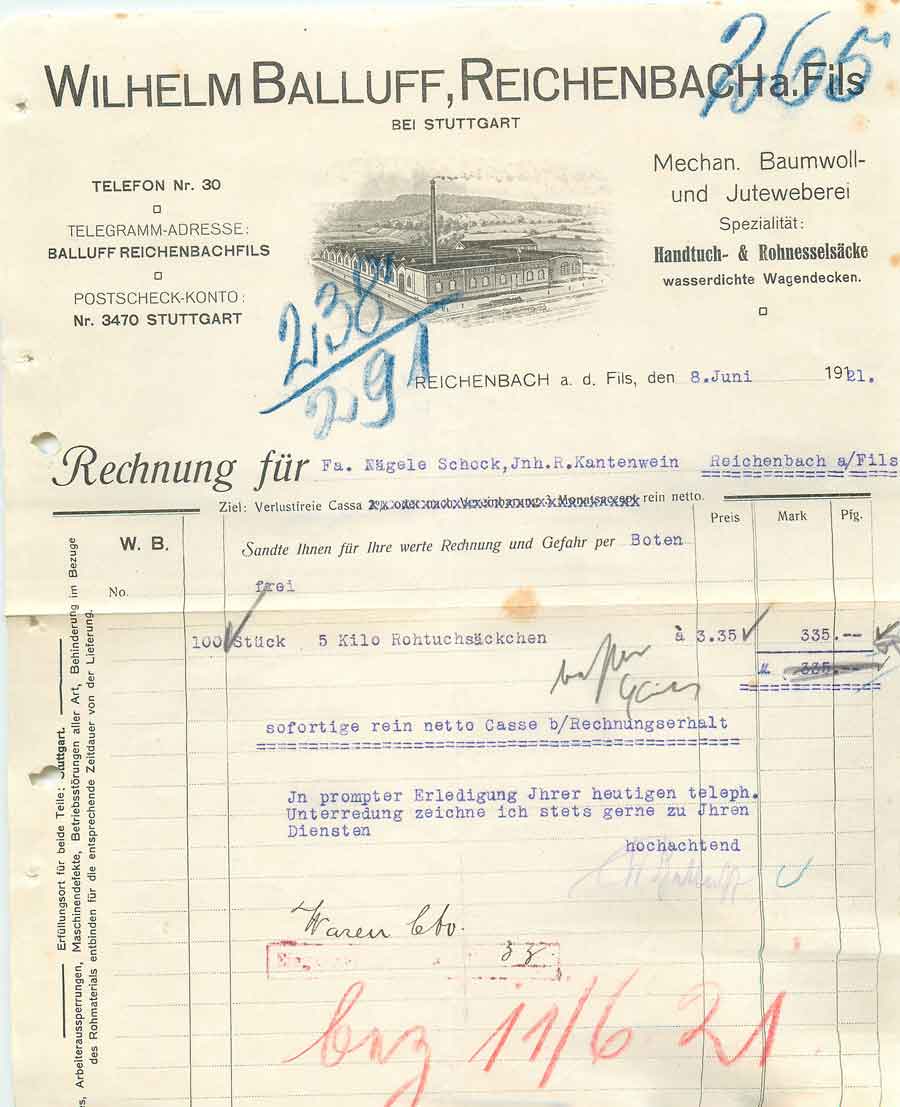 265
WILHELM BALLUFF, REICHENBACH a. Fils
BEI STUTTGART
TELEFON Nr. 30
TELEGRAMM-ADRESSE:
BALLUFF REICHENBACHFILS
POSTSCHECK-KONTO:
Nr. 3470 STUTTGART
Mechan. Baumwoll-
und Juteweberei
Spezialität:
Handtuch- & Rohnesselsäcke
wasserdichte Wagendecken.
238
291
REICHENBACH a. d. Fils, den 8.Juni 1921.
Rechnung für Fa. Nägele Schock,Jnh.R.Kantenwein Reichenbach a/Fils
Ziel: Verlustfreie Cassa rein netto.
W. B. Preis Mark Pfg.
Sandte Ihnen für Ihre werte Rechnung und Gefahr per Boten
No.
frei
100 Stück 5 Kilo Rohtuchsäckchen à 3.35 335.--
M. 335.--
sofortige rein netto Casse b/Rechnungserhalt
Jn prompter Erledigung Jhrer heutigen teleph.
Unterredung zeichne ich stets gerne zu Jhren
Diensten
hochachtend
Waren Cto.
33
bez 11/6 21
Erfüllungsort für beide Teile: Stuttgart.
Arbeiteraussperrungen, Maschinendefekte, Betriebsstörungen aller Art, Behinderung im Bezuge
des Rohmaterials entbinden für die entsprechende Zeitdauer von der Lieferung.